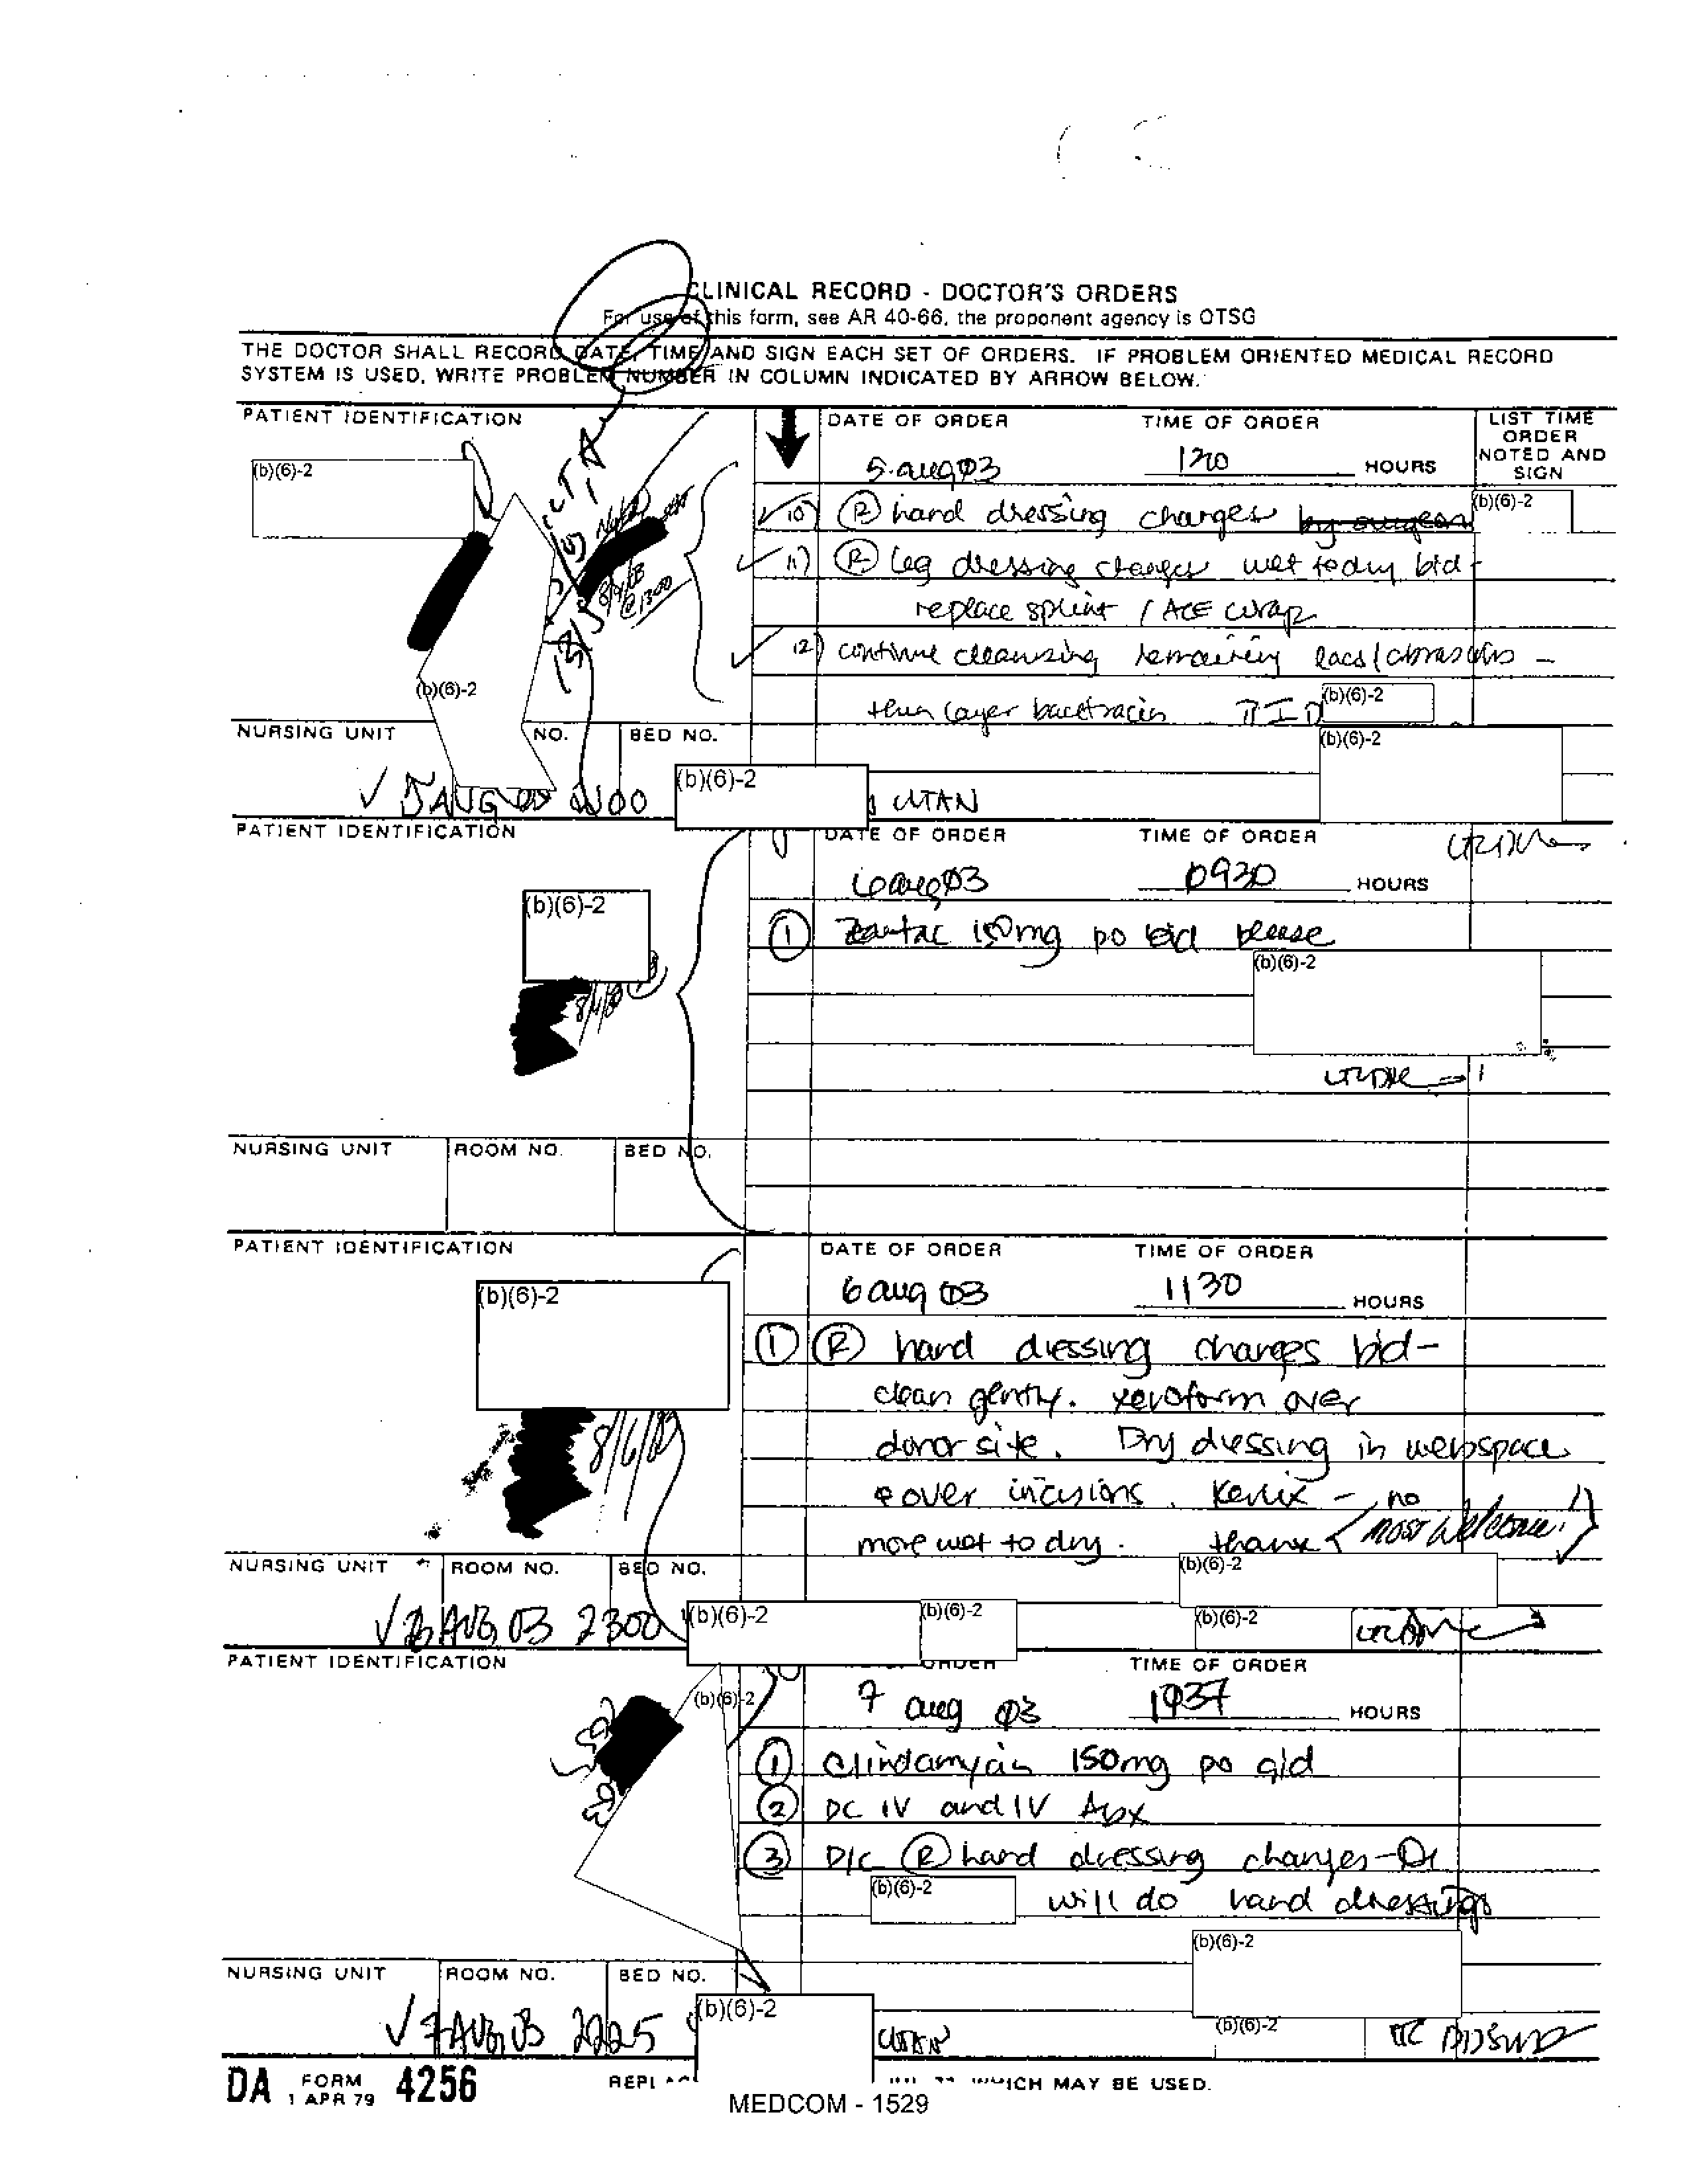 CLINICAL RECORD - DOCTOR'S ORDERS
For use of this form, see AR 40-66, the proponent agency is OTSG
THE DOCTOR SHALL RECORD DATE, TIME AND SIGN EACH SET OF ORDERS. IF PROBLEM ORIENTED MEDICAL RECORD
SYSTEM IS USED, WRITE PROBLEM NUMBER IN COLUMN INDICATED BY ARROW BELOW.
PATIENT IDENTIFICATION
DATE OF ORDER
TIME OF ORDER
LIST TIME
ORDER
NOTED AND
SIGN
(b)(6)-2
5 aug 03
HOURS
(b)(6)-2
10) R hand dressing changes by surgeon
11) R leg dressing changes wet to dry bid -
Noted
8/5/03
@ 1300
replace splint / ACE wrap
12) continue cleansing remaining lacs/abrasions -
(b)(6)-2
thin layer bacitracin BID
(b)(6)-2
NURSING UNIT
NO.
BED NO.
(b)(6)-2
✓ 5 AUG 03
(b)(6)-2
PATIENT IDENTIFICATION
DATE OF ORDER
TIME OF ORDER
6 aug 03
0930 HOURS
(b)(6)-2
① Zantac 150mg po bid please
(b)(6)-2
NURSING UNIT
ROOM NO.
BED NO.
PATIENT IDENTIFICATION
DATE OF ORDER
TIME OF ORDER
(b)(6)-2
6 aug 03
1130 HOURS
① R hand dressing changes bid-
clean gently. xeroform over
8/6/03
donor site. Dry dressing in webspace
over incisions. Kerlix - no
more wet to dry. thanx (most welcome!)
NURSING UNIT
ROOM NO.
BED NO.
(b)(6)-2
✓ 6 AUG 03 2300
(b)(6)-2
(b)(6)-2
(b)(6)-2
PATIENT IDENTIFICATION
ORDER
TIME OF ORDER
(b)(6)-2
7 aug 03
1037 HOURS
① Clindamycin 150mg po qid
② DC IV and IV Abx
③ D/C R hand dressing changes - Dr
(b)(6)-2
will do hand dressings
(b)(6)-2
NURSING UNIT
ROOM NO.
BED NO.
✓ 7 AUG 03 2225
(b)(6)-2
(b)(6)-2
DA FORM 4256
1 APR 79
WHICH MAY BE USED.
MEDCOM - 1529